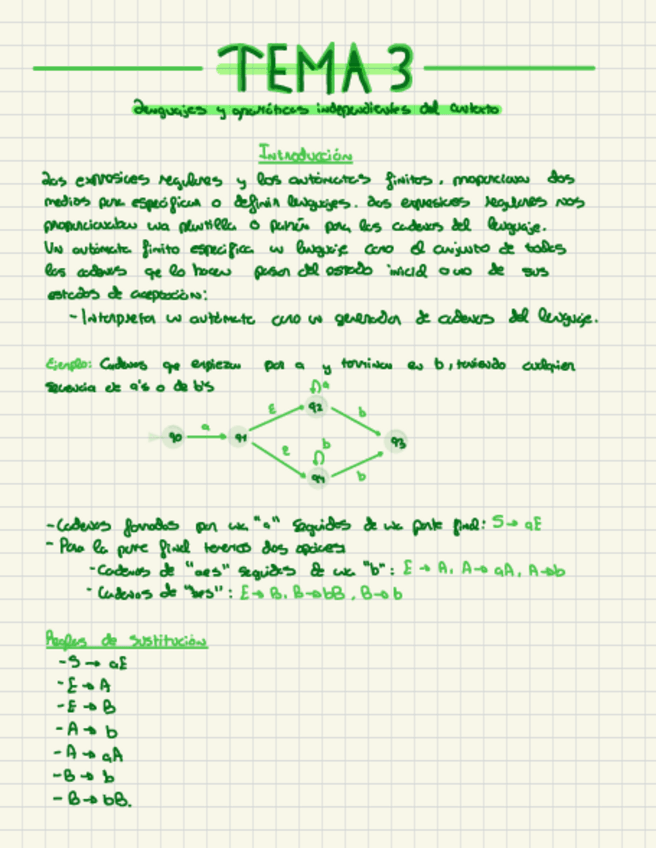 TEMA 3
Lenguajes y gramáticas independientes del contexto
Introducción
Las expresiones regulares y los autómatas finitos, proporcionan dos
medios para especificar o definir lenguajes. Las expresiones regulares nos
proporcionaban una plantilla o patrón para las cadenas del lenguaje.
Un autómata finito especifica un lenguaje como el conjunto de todas
las cadenas que lo hacen pasar del estado inicial a uno de sus
estados de aceptación:
- Interpretar un autómata como un generador de cadenas del lenguaje.
Ejemplo: Cadenas que empiezan por a y terminan en b, teniendo cualquier
secuencia de a's o de b's
a
q2
ε
b
q0
a
q1
q3
ε
b
b
- Cadenas formadas por una "a" seguidas de una parte final: S → aE
- Para la parte final tenemos dos opciones
- Cadenas de "aes" seguidas de una "b": E → A, A → aA, A → b
- Cadenas de "bes": E → B, B → bB, B → b
Reglas de sustitución
- S → aE
- E → A
- E → B
- A → b
- A → aA
- B → b
- B → bB.